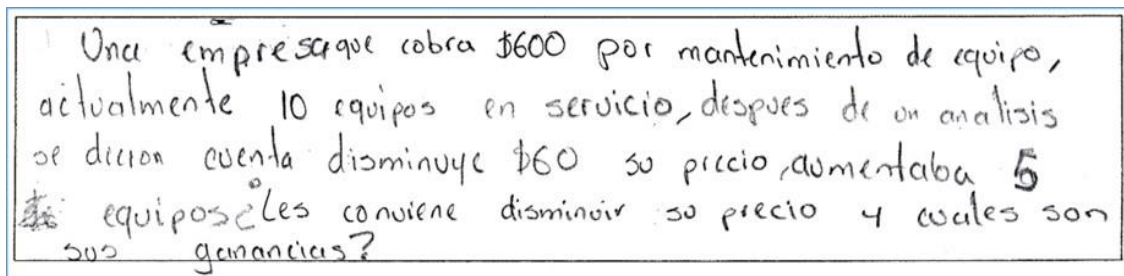 Una empresa que cobra $600 por mantenimiento de equipo,
actualmente 10 equipos en servicio, despues de un analisis
se dieron cuenta disminuye $60 su precio, aumentaba 5
equipos ¿Les conviene disminuir su precio y cuales son
sus ganancias?